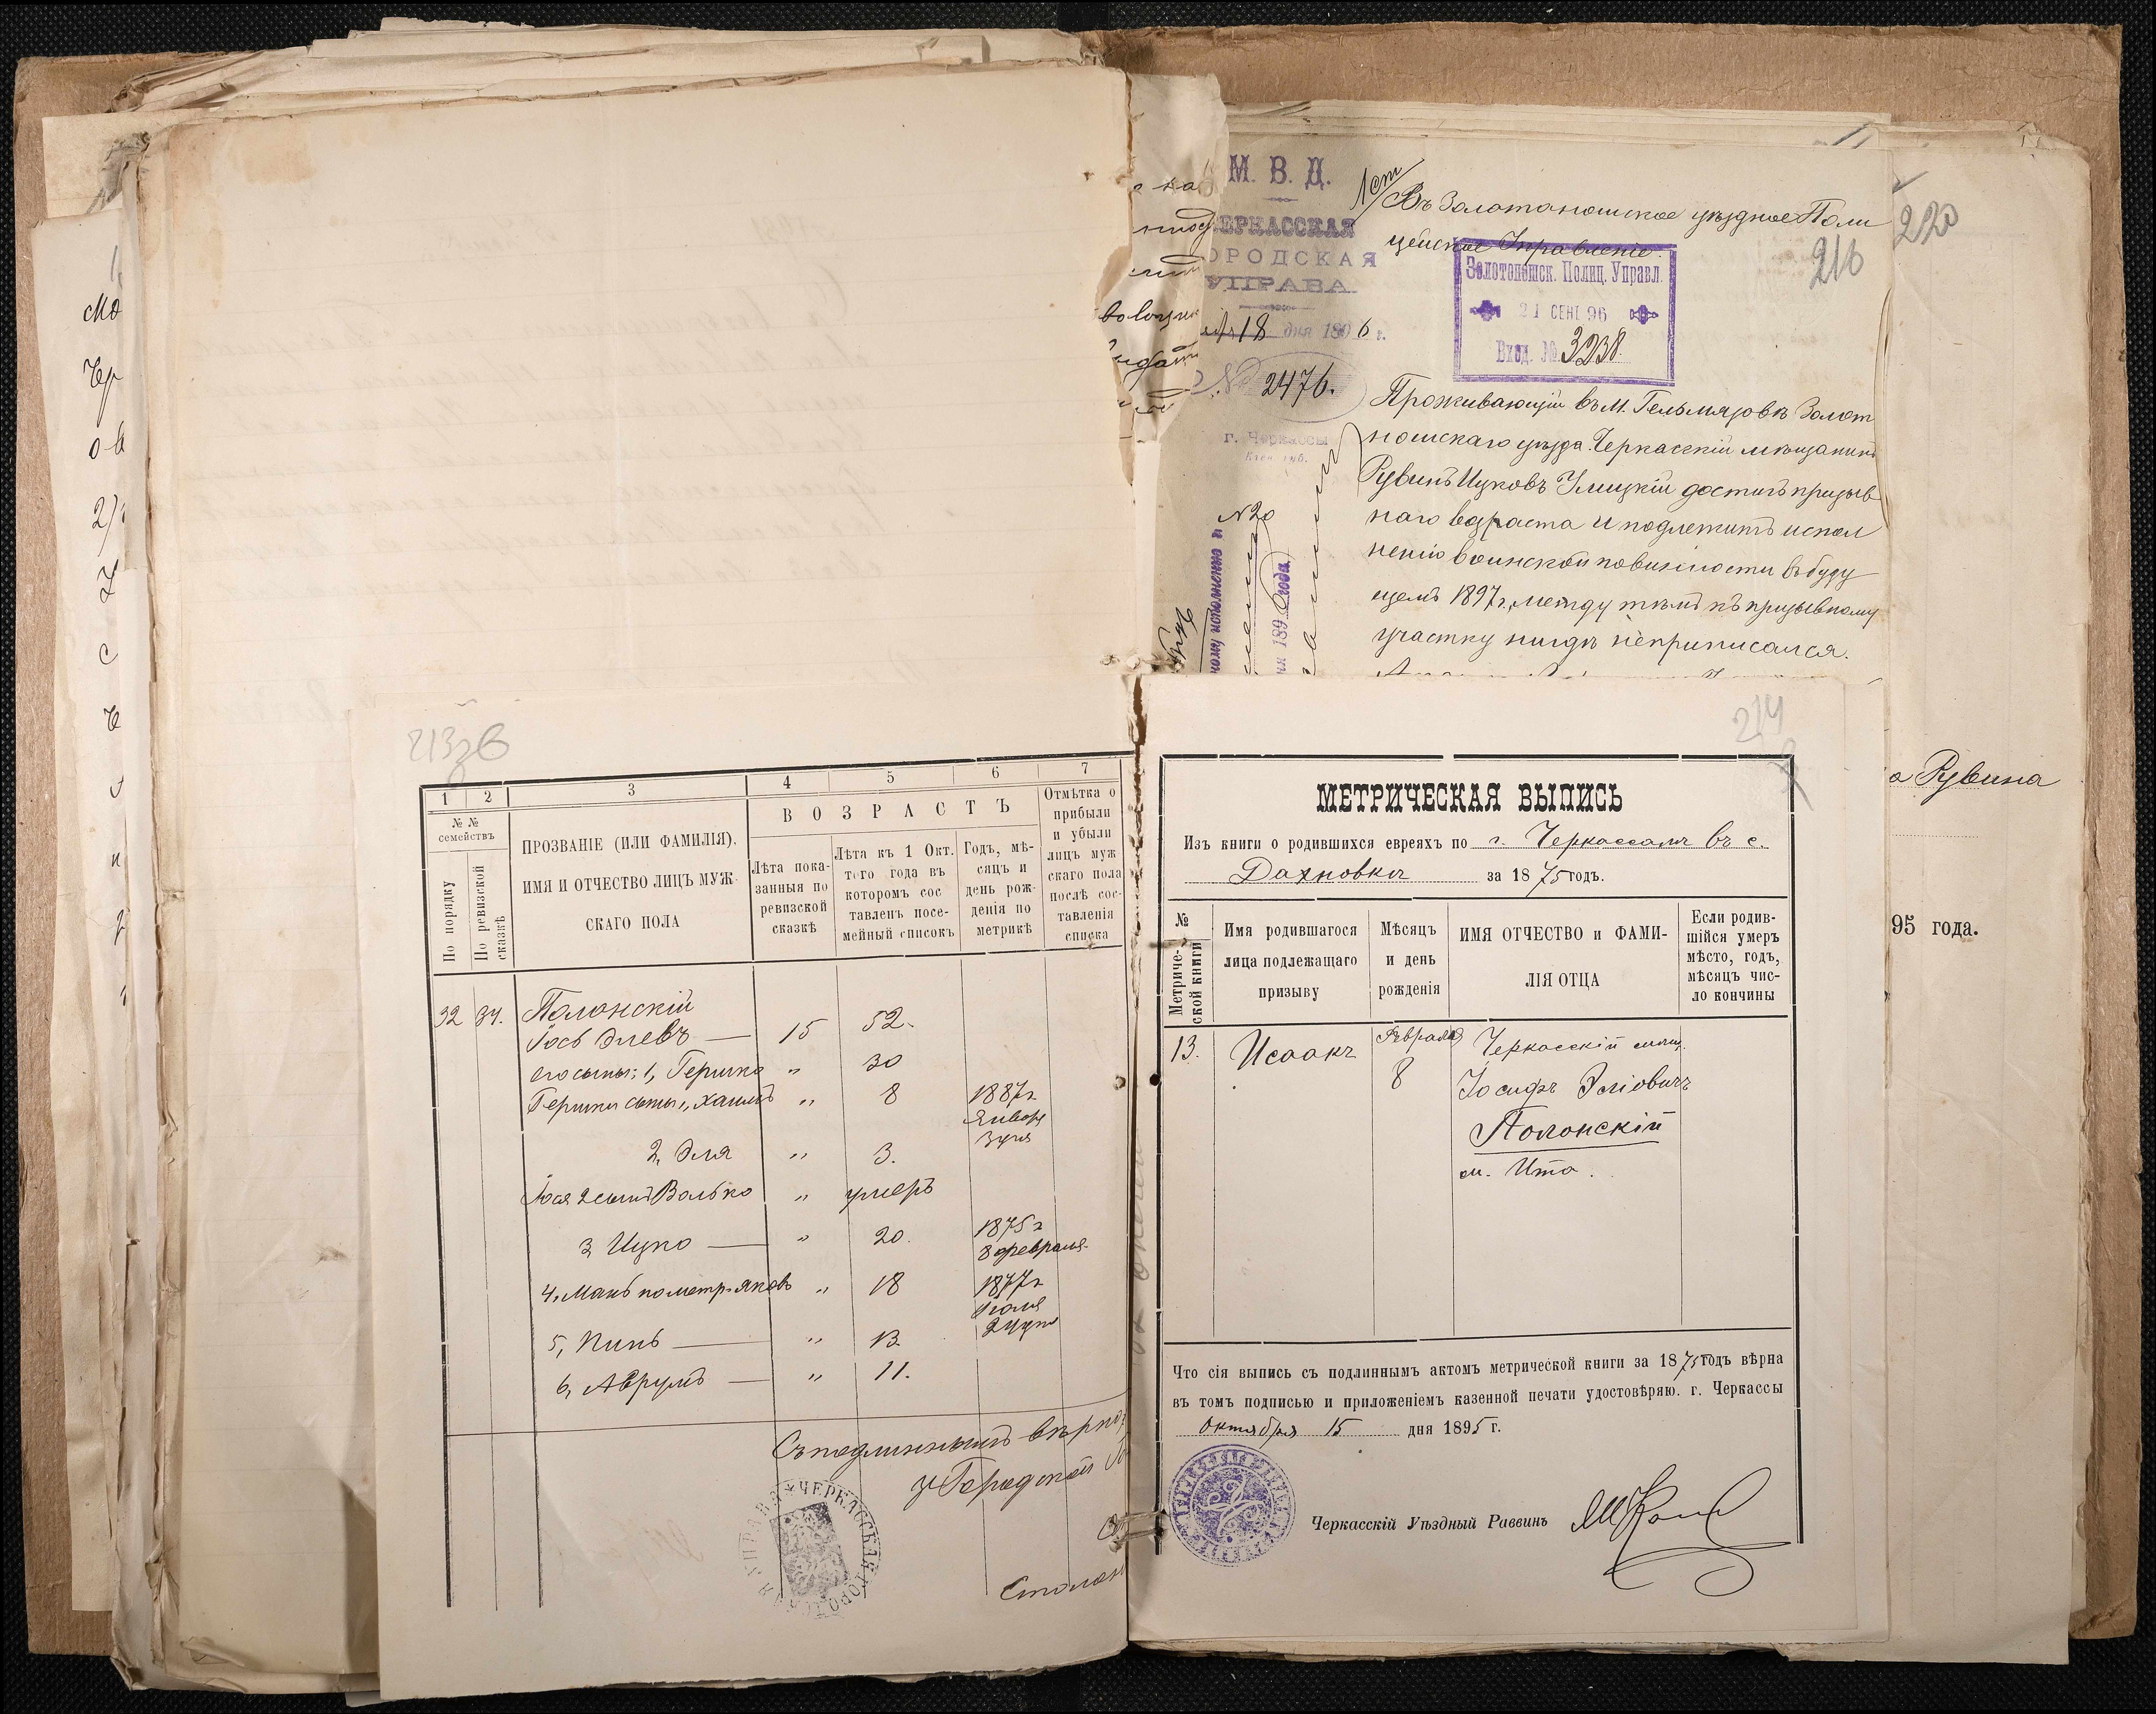 М. В. Д.
ЧЕРКАССКАЯ
ГОРОДСКАЯ
УПРАВА
18 дня 1896 г.
№ 2476.
г. Черкассы
Кіев. губ.
№ 20
1 ст
Въ Золотоношское уѣздное Поли
цейское Управленіе.
Золотоношск. Полиц. Управл.
21 СЕНТ 96
Вход. № 3238.
220
216
Проживающій въ м. Гельмязовѣ Золот
ношскаго уѣзда Черкасскій мѣщанинъ
Рувинъ Ицковъ Улицкій достигъ призыв
наго возраста и подлежитъ испол
ненію воинской повинности въ буду
щемъ 1897 г., между тѣмъ къ призывному
участку нигдѣ неприписался.
а Рувина
95 года.
213 об
1 2 3 4 5 6 7
№ №
семействъ
По порядку
По ревизской
сказкѣ
ПРОЗВАНІЕ (ИЛИ ФАМИЛІЯ).
ИМЯ И ОТЧЕСТВО ЛИЦЪ МУЖ-
СКАГО ПОЛА
ВОЗРАСТЪ
Лѣта пока-
занныя по
ревизской
сказкѣ
Лѣта къ 1 Окт.
того года въ
которомъ сос
тавленъ посе-
мейный списокъ
Годъ, мѣ-
сяцъ и
день рож-
денія по
метрикѣ
Отмѣтка о
прибыли
и убыли
лицъ муж
скаго пола
послѣ сос-
тавленія
списка
32 34. Полонскій
Іось Элевъ — 15 52.
его сыны: 1, Гершко " 30
Гершки сыны 1, Хаимъ " 8 1887 г Января 3 дня
2, Эля " 3.
Іося 2 сынъ Волько " умеръ
3, Ицко — " 20. 1875 г 8 февраля.
4, Манъ по метр. Яковъ " 18 1877 г Іюля 24 дня
5, Пинь — " 13.
6, Аврумъ — " 11.
Съ подлиннымъ вѣрно
Городской
ЧЕРКАССКАЯ ГОРОДСКАЯ УПРАВА
214
МЕТРИЧЕСКАЯ ВЫПИСЬ
Изъ книги о родившихся евреяхъ по г. Черкассамъ въ с.
Дахновкѣ за 1875 годъ.
№
Метриче-
ской книги
Имя родившагося
лица подлежащаго
призыву
Мѣсяцъ
и день
рожденія
ИМЯ ОТЧЕСТВО и ФАМИ-
ЛІЯ ОТЦА
Если родив-
шійся умеръ
мѣсто, годъ,
мѣсяцъ чис-
ло кончины
13. Исаакъ Февраля 8 Черкасскій мѣщ.
Іосифъ Эліовичъ
Полонскій
м. Ита.
Что сія выпись съ подлиннымъ актомъ метрической книги за 1875 годъ вѣрна
въ томъ подписью и приложеніемъ казенной печати удостовѣряю. г. Черкассы
Октября 15 дня 1895 г.
Черкасскій Уѣздный Раввинъ